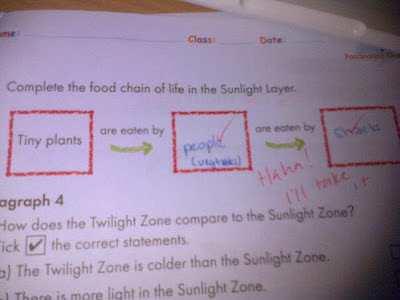 ame:
Class: Date:
Fascinating
Complete the food chain of life in the Sunlight Layer.
Tiny plants are eaten by people are eaten by
Haha!
I'll take it
agraph 4
How does the Twilight Zone compare to the Sunlight Zone?
ick ✓ the correct statements.
a) The Twilight Zone is colder than the Sunlight Zone.
) There is more light in the Sunlight Zone.